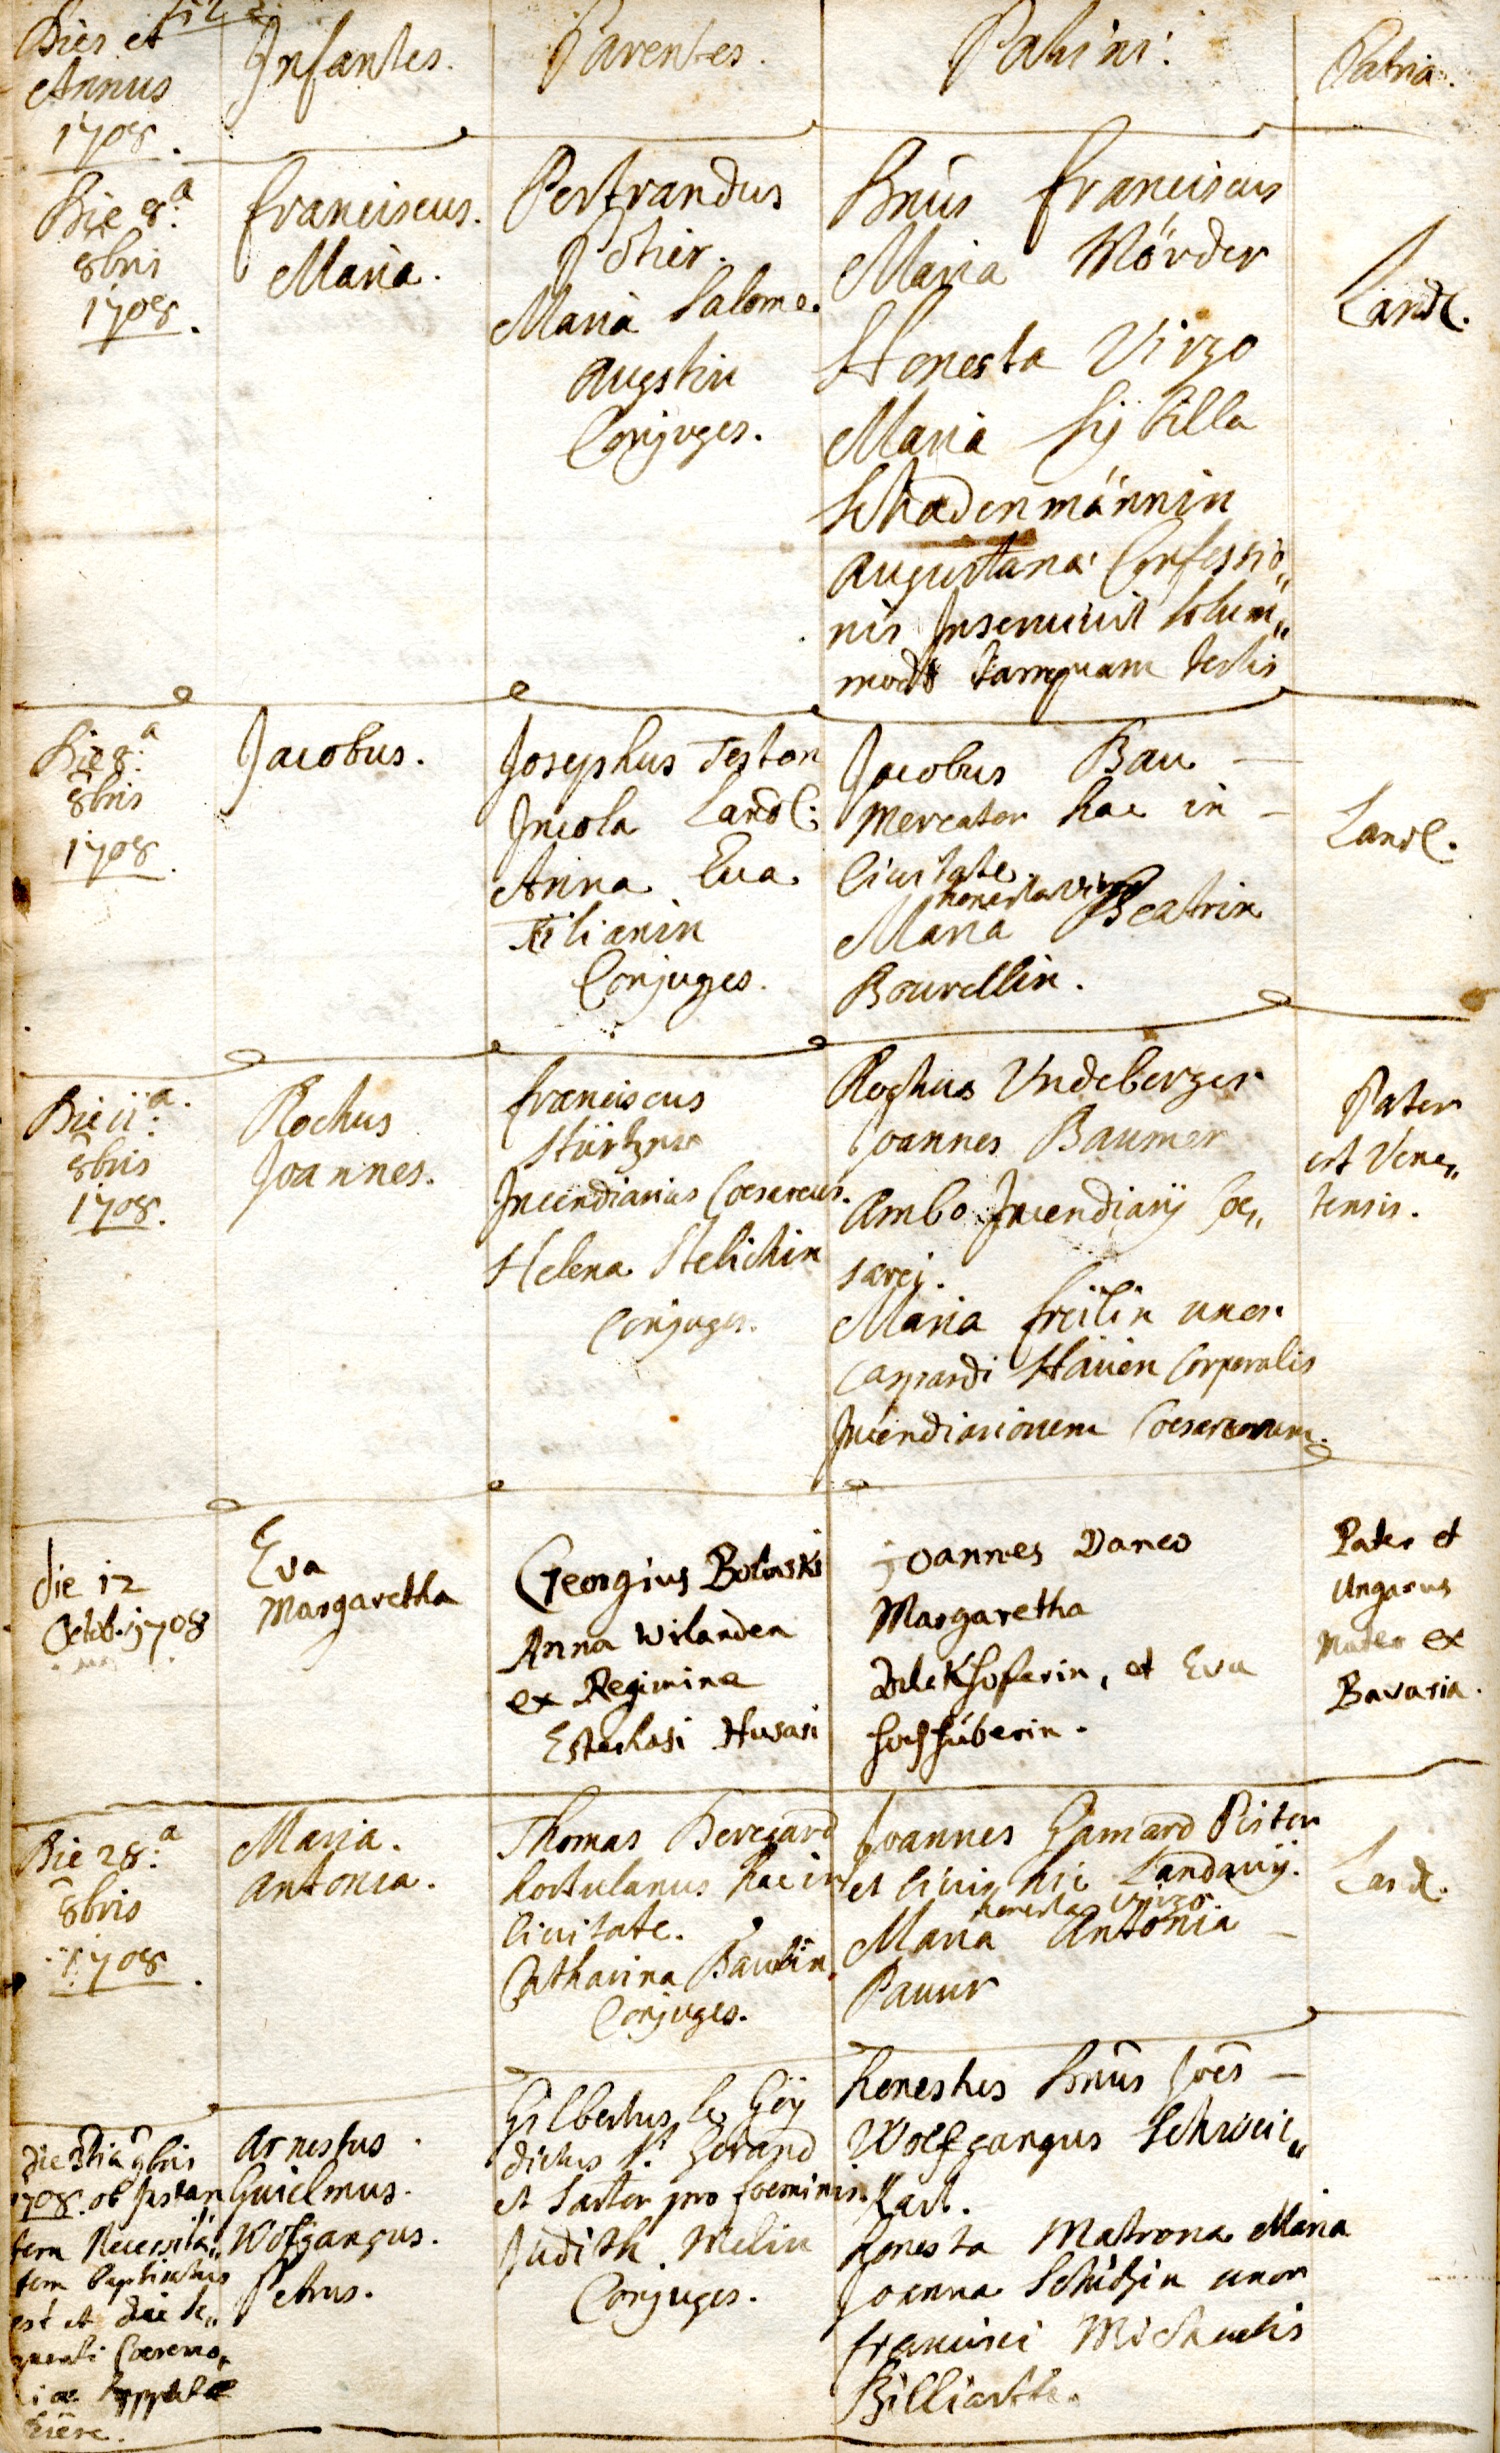 Dies et
Annus
1708.
Infantes.
Parentes.
Patrini:
Patria.
Die 8.a
8bris
1708.
Franciscus.
Maria.
Pertrandus
Potier.
Maria Salome.
Augstin
Conjuges.
Dnus Franciscus
Maria Mörder
Honesta Virgo
Maria Sijbilla
Schadenmännin
Augustana Confessio„
nis Inseruiuit solum„
modo tamquam testis
Landl.
Die 8.a
8bris
1708.
Jacobus.
Josephus Teston
Incola Landl:
Anna Eua
Kilianin
Conjuges.
Jacobus Bau —
mercator hac in —
Ciuitate.
honesta virgo
Maria Beatrix
Bourellin.
Landl.
Die ii.a
8bris
1708.
Rochus
Joannes.
Franciscus
Incendiarius Coesareus.
Helena Stelichin
Conjuges.
Rochus Vndeberger
Joannes Baumer
Ambo Incendiarij Coe„
sarej.
Maria Freilin uxor
Caspardi Hauen Corporalis
Incendiariorum Coesareorum.
Pater
est Vene„
tensis.
die 12
Octob. 1708
Eva
Margaretha
Georgius Botaski
Anna Wilanden
ex Regimine
Esterhasi Husari
Joannes Daneo
Margaretha
et Eva
hochhüberin.
Pater et
Ungarus
Mater ex
Bavaria.
Die 28.a
8bris
1708.
Maria.
Antonia.
Thomas Beregard
hortulanus hac in
Ciuitate.
Catharina Baulin.
Conjuges.
Joannes Gamard Pistor
et Ciuis hic Landauij.
honesta virgo
Maria Antonia —
Pauur
Landl.
Die 9bris
1708. ob Instan
tem Necessita„
tem Baptisatus
est et die se„
quenti Coeremo„
iae suppletae
fuere.
Arnestus
Guielmus.
Wolfgangus.
Petrus.
Gilbertus le Goÿ
dictus St. Gerand
et Sartor pro foeminis.
Judith Melin
Conjuges.
honestus Dnus Joes —
Wolfgangus Schweic„
kart.
honesta Matrona Maria
Joanna Schützin uxor
Francisci Michaelis
Billiartte.